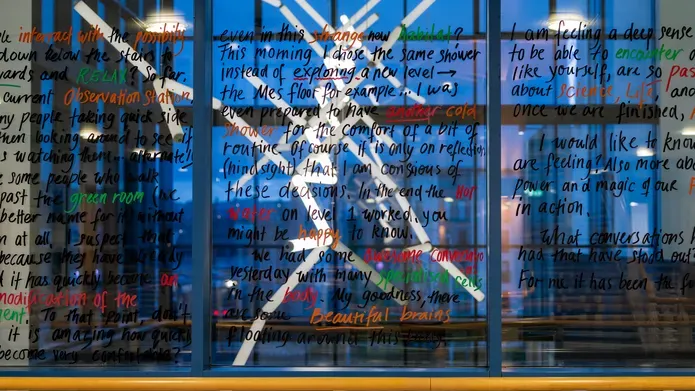 interact with the possibility
down below the stairs to
wards and RELAX? So far.
current Observation Station
ny people taking quick side
then looking around to see if
s watching them... alternatel
e some people who walk
past the green room (we
better name for it without
n at all. I suspect that
because they have already
d it has quickly become an
modification of the
ent! To that point, don't
it is amazing how quickly
become very comfortable?
even in this strange new habitat?
This morning I chose the same shower
instead of exploring a new level →
the Mes floor for example... I was
even prepared to have another cold
shower for the comfort of a bit of
routine. Of course it is only on reflection
(hindsight) that I am consious of
these decisions. In the end the Hot
water on level 1 worked, you
might be happy to know.
We had some awesome conversa
yesterday with many specialised cells
in the body. My goodness, there
are some Beautiful brains
floating around this
I am feeling a deep sense
to be able to encounter
like yourself, are so pas
about science, Life, and
once we are finished,
I would like to know
are feeling? Also more abo
power and magic of our
in action.
What conversations h
had that have stood out?
For me it has been the f